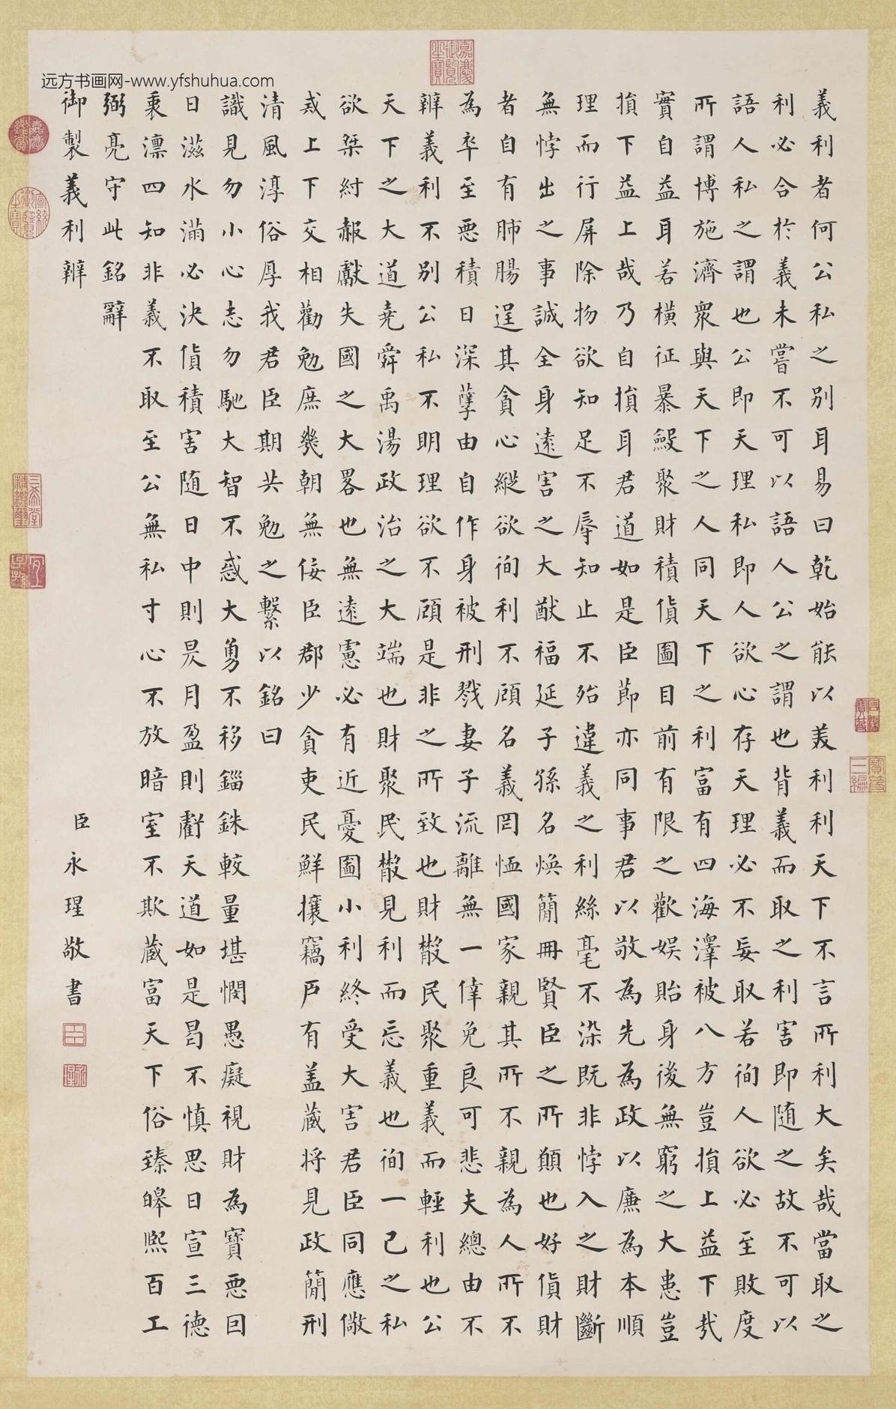 远方书画网-www.yfshuhua.com
義利者何公私之別耳易曰乾始能以美利利天下不言所利大矣哉當取之
利必合於義未嘗不可以語人公之謂也背義而取之利害即隨之故不可以
語人私之謂也公即天理私即人欲心存天理必不妄取若徇人欲必至敗度
所謂博施濟衆與天下之人同天下之利富有四海澤被八方豈損上益下哉
實自益耳若橫征暴斂聚財積貨圖目前有限之歡娛貽身後無窮之大患豈
損下益上哉乃自損耳君道如是臣節亦同事君以敬為先為政以廉為本順
理而行屏除物欲知足不辱知止不殆違義之利絲毫不染既非悖入之財斷
無悖出之事誠全身遠害之大猷福延子孫名煥簡冊賢臣之所願也好貨財
者自有肺腸逞其貪心縱欲徇利不顧名義罔恤國家親其所不親為人所不
為卒至惡積日深孽由自作身被刑戮妻子流離無一倖免良可悲夫總由不
辨義利不別公私不明理欲不顧是非之所致也財散民聚重義而輕利也公
天下之大道堯舜禹湯政治之大端也財聚民散見利而忘義也徇一己之私
欲桀紂赧獻失國之大畧也無遠慮必有近憂圖小利終受大害君臣同應儆
戒上下交相勸勉庶幾朝無佞臣郡少貪吏民鮮攘竊戶有盖藏将見政簡刑
清風淳俗厚我君臣期共勉之繫以銘曰
識見勿小心志勿馳大智不惑大勇不移錙銖較量堪憫愚癡視財為寶惡回
日滋水滿必決貨積害隨日中則昃月盈則虧天道如是曷不慎思日宣三德
秉凛四知非義不取至公無私寸心不放暗室不欺藏富天下俗臻皞熙百工
弼亮守此銘辭
御製義利辨
臣永瑆敬書